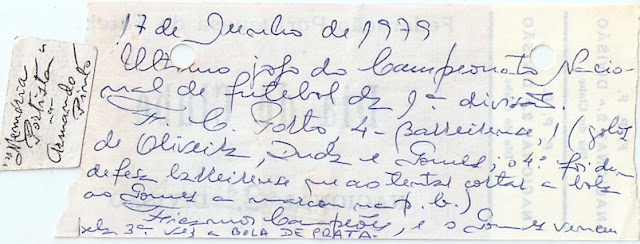 17 de Junho de 1979
Ultimo jogo do Campeonato Nacio-
nal de futebol da 1ª divisão.
F. C. Porto 4 - Barreirense, 1 (golos
de Oliveira, Duda e Gomes; o 4º foi dum
defesa barreirense que ao tentar cortar a bola
ao Gomes a marcou na p. b.)
Ficamos Campeões, e o Gomes venceu
pela 3ª vez a BOLA DE PRATA.
"Memória
Portista"
Armando
Pinto